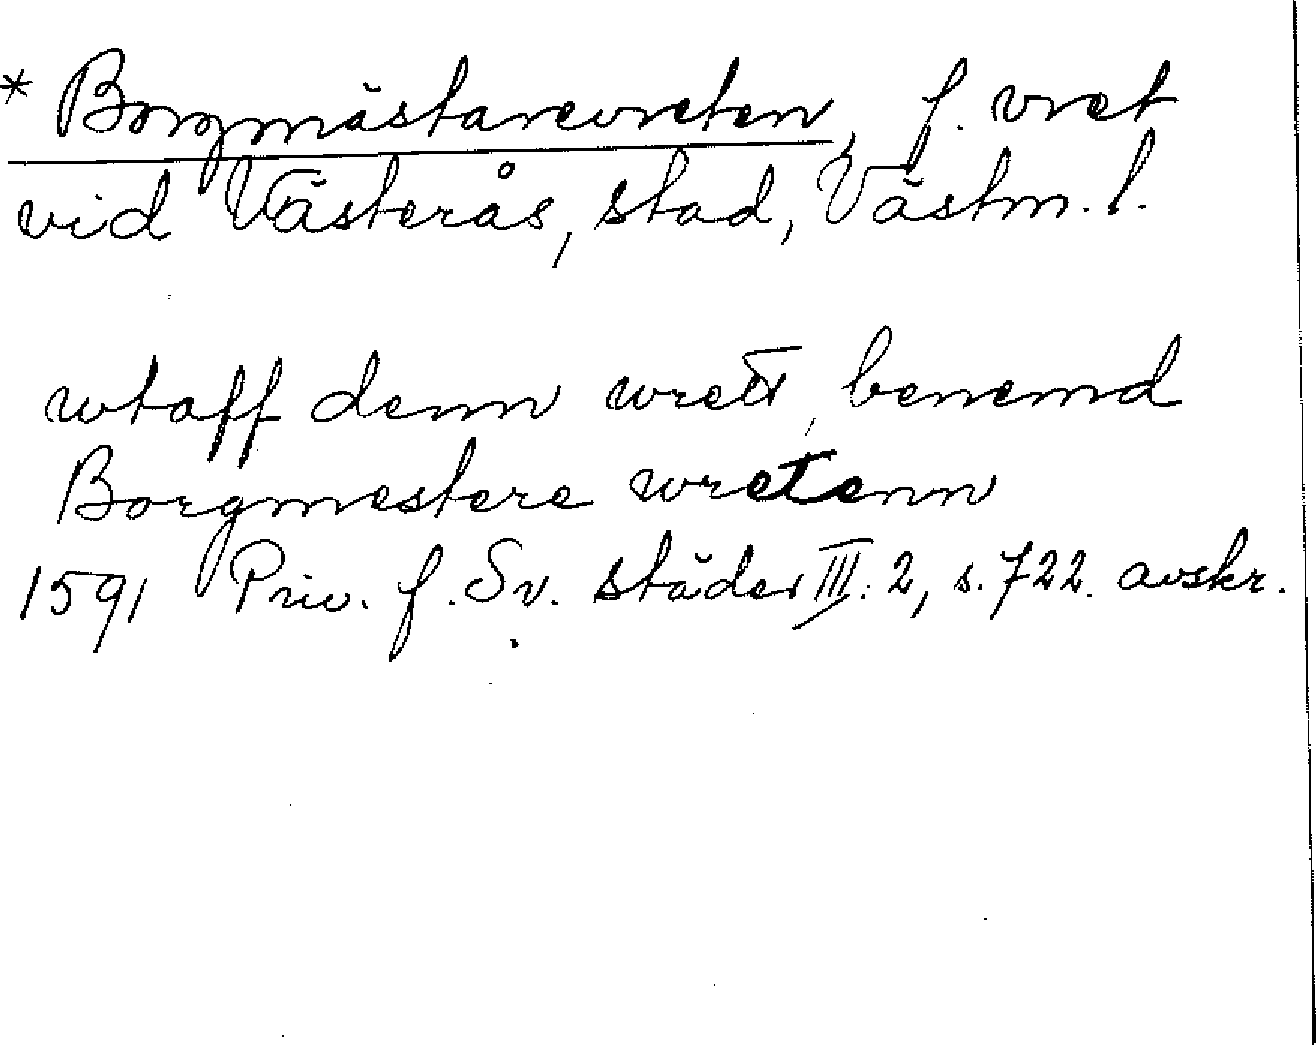 * Borgmästarevreten, f. vret
vid Västerås, stad, Västm. l.
wtaff denn wrett, benemd
Borgmestere wretenn
1591 Priv. f. Sv. städer III: 2, s. 722. avskr.